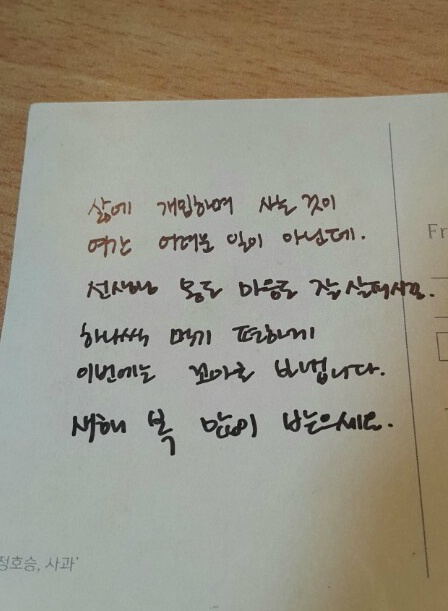 삶에 개입하며 사는 것이
여간 어려운 일이 아닌데.
선생님 몸도 마음도 잘 살피시고.
하나씩 먹기 편하게
이번에는 꼬마로 보냅니다.
새해 복 많이 받으세요.
Fr
정호승, 사과'